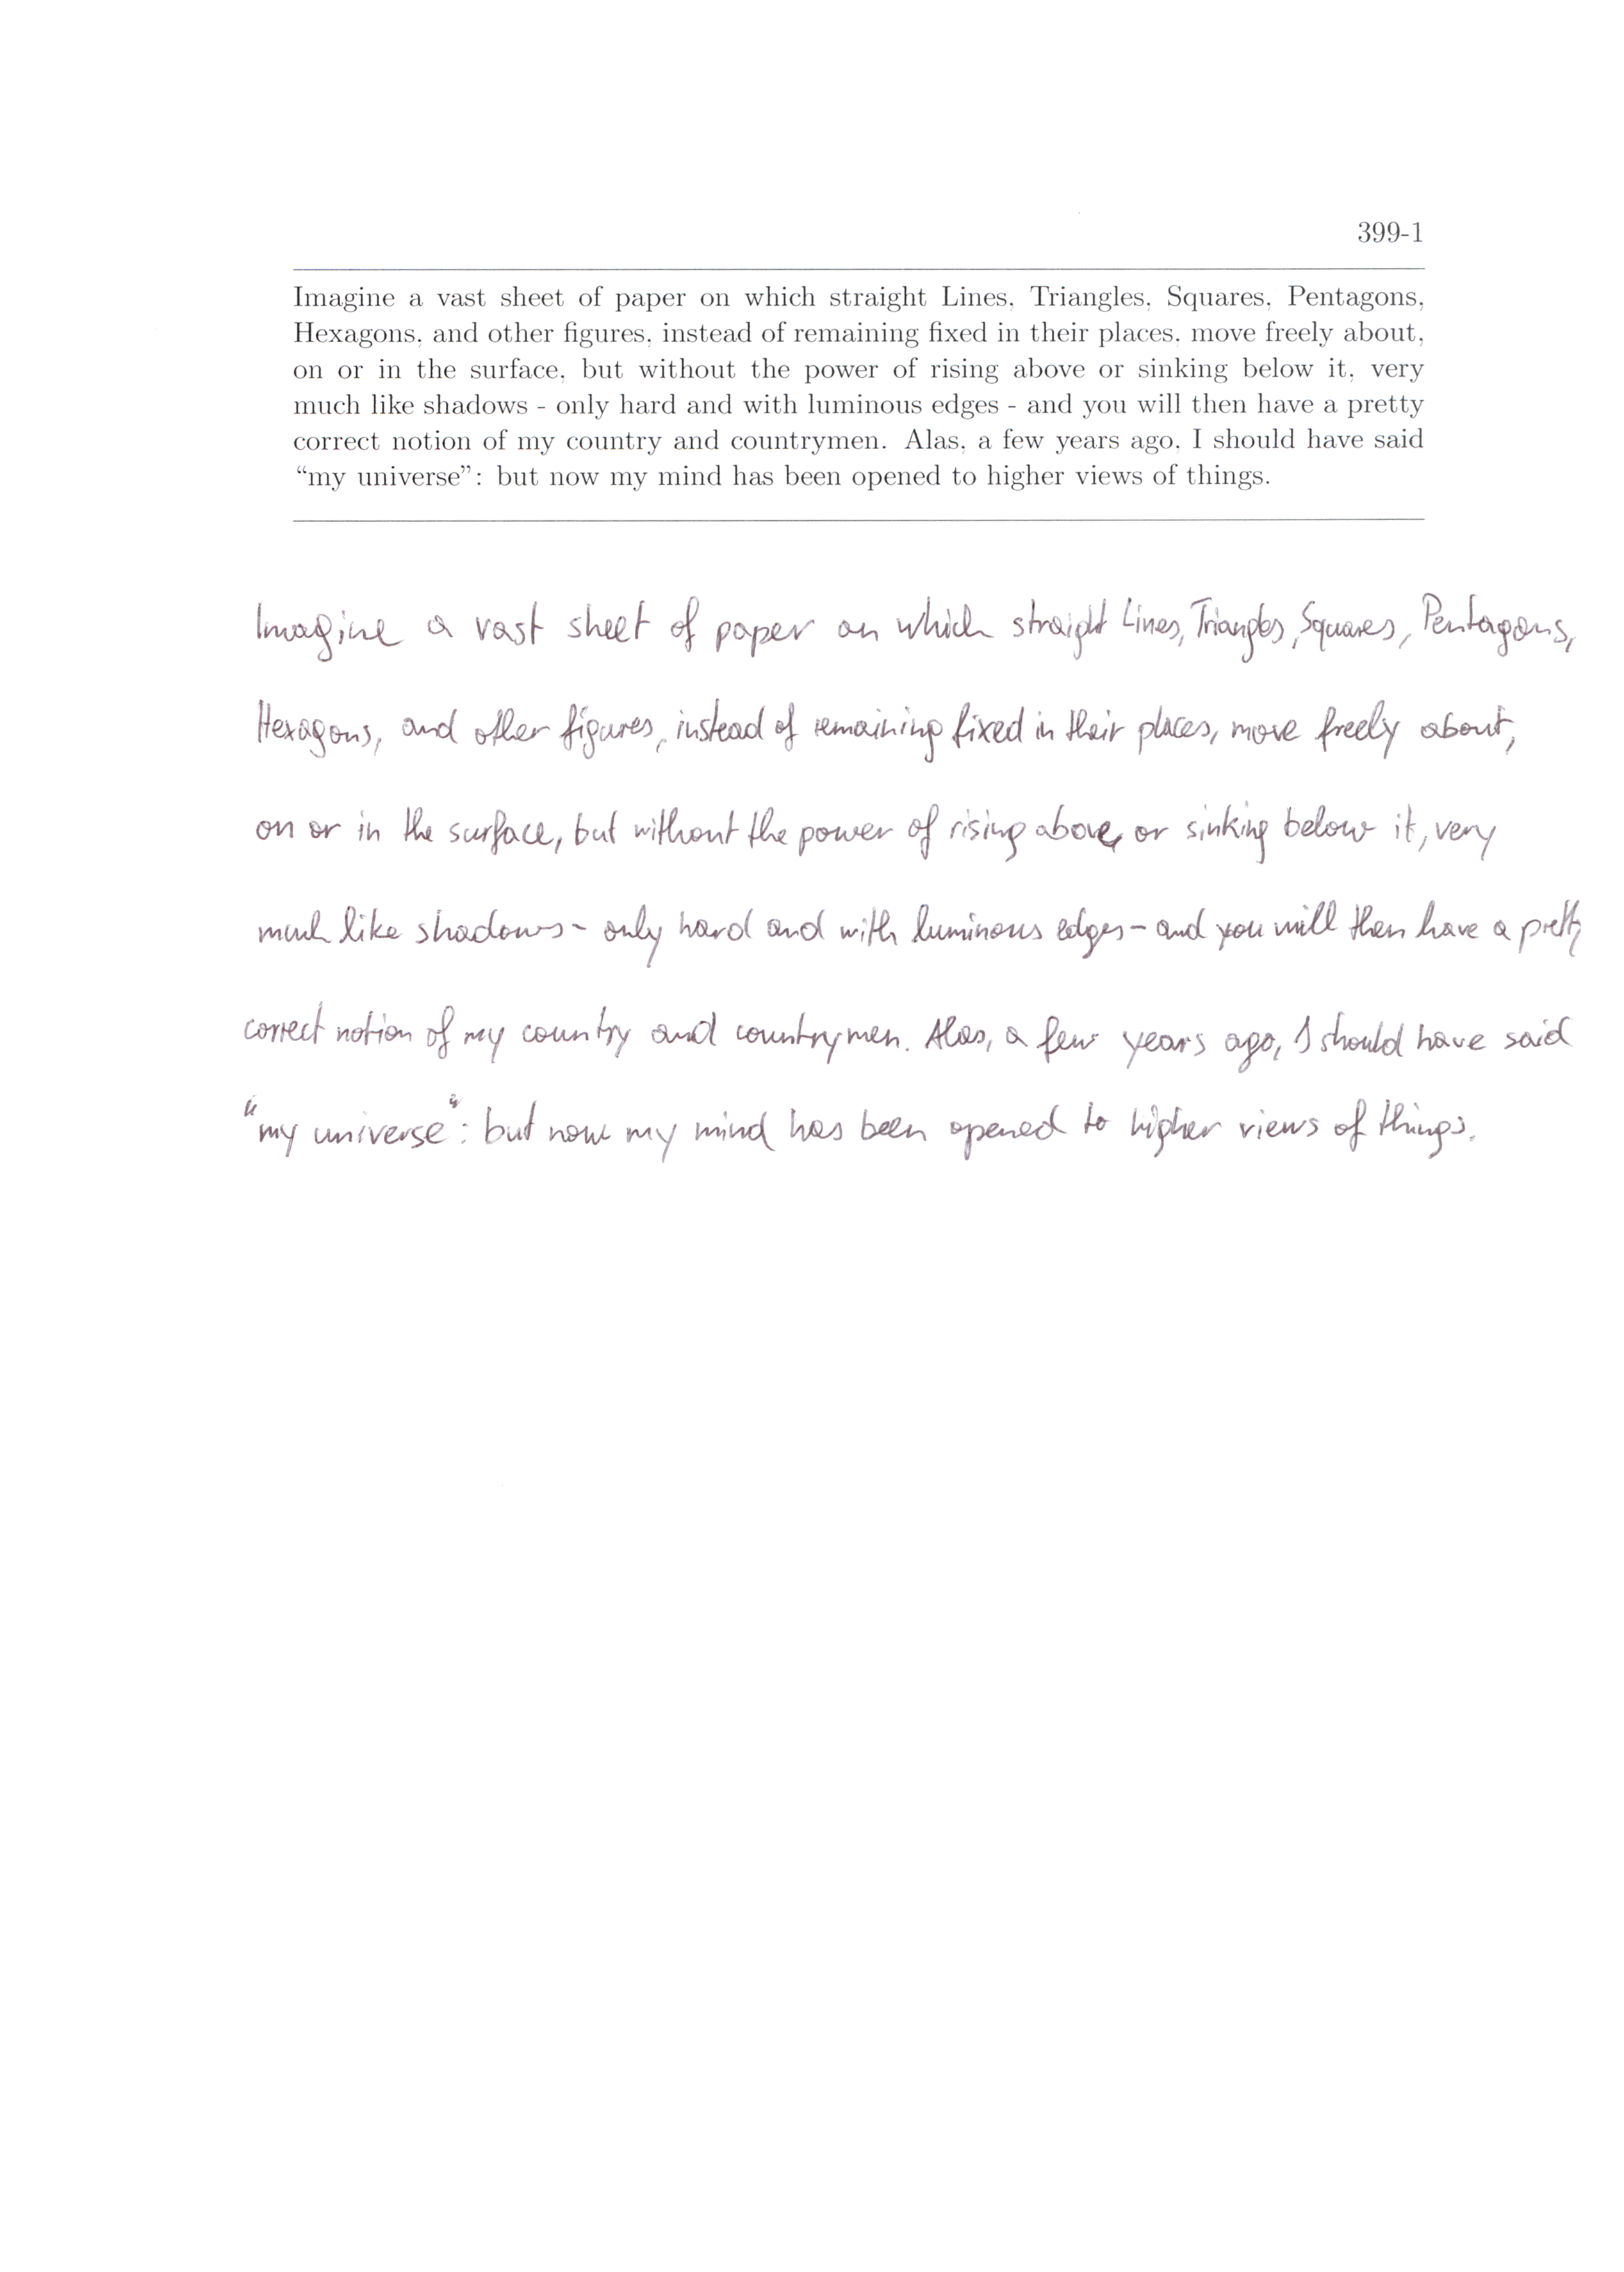 399-1
Imagine a vast sheet of paper on which straight Lines, Triangles, Squares, Pentagons,
Hexagons, and other figures, instead of remaining fixed in their places, move freely about,
on or in the surface, but without the power of rising above or sinking below it, very
much like shadows - only hard and with luminous edges - and you will then have a pretty
correct notion of my country and countrymen. Alas, a few years ago, I should have said
“my universe”: but now my mind has been opened to higher views of things.
Imagine a vast sheet of paper on which straight Lines, Triangles, Squares, Pentagons,
Hexagons, and other figures, instead of remaining fixed in their places, move freely about,
on or in the surface, but without the power of rising above or sinking below it, very
much like shadows - only hard and with luminous edges - and you will then have a pretty
correct notion of my country and countrymen. Alas, a few years ago, I should have said
"my universe": but now my mind has been opened to higher views of things.